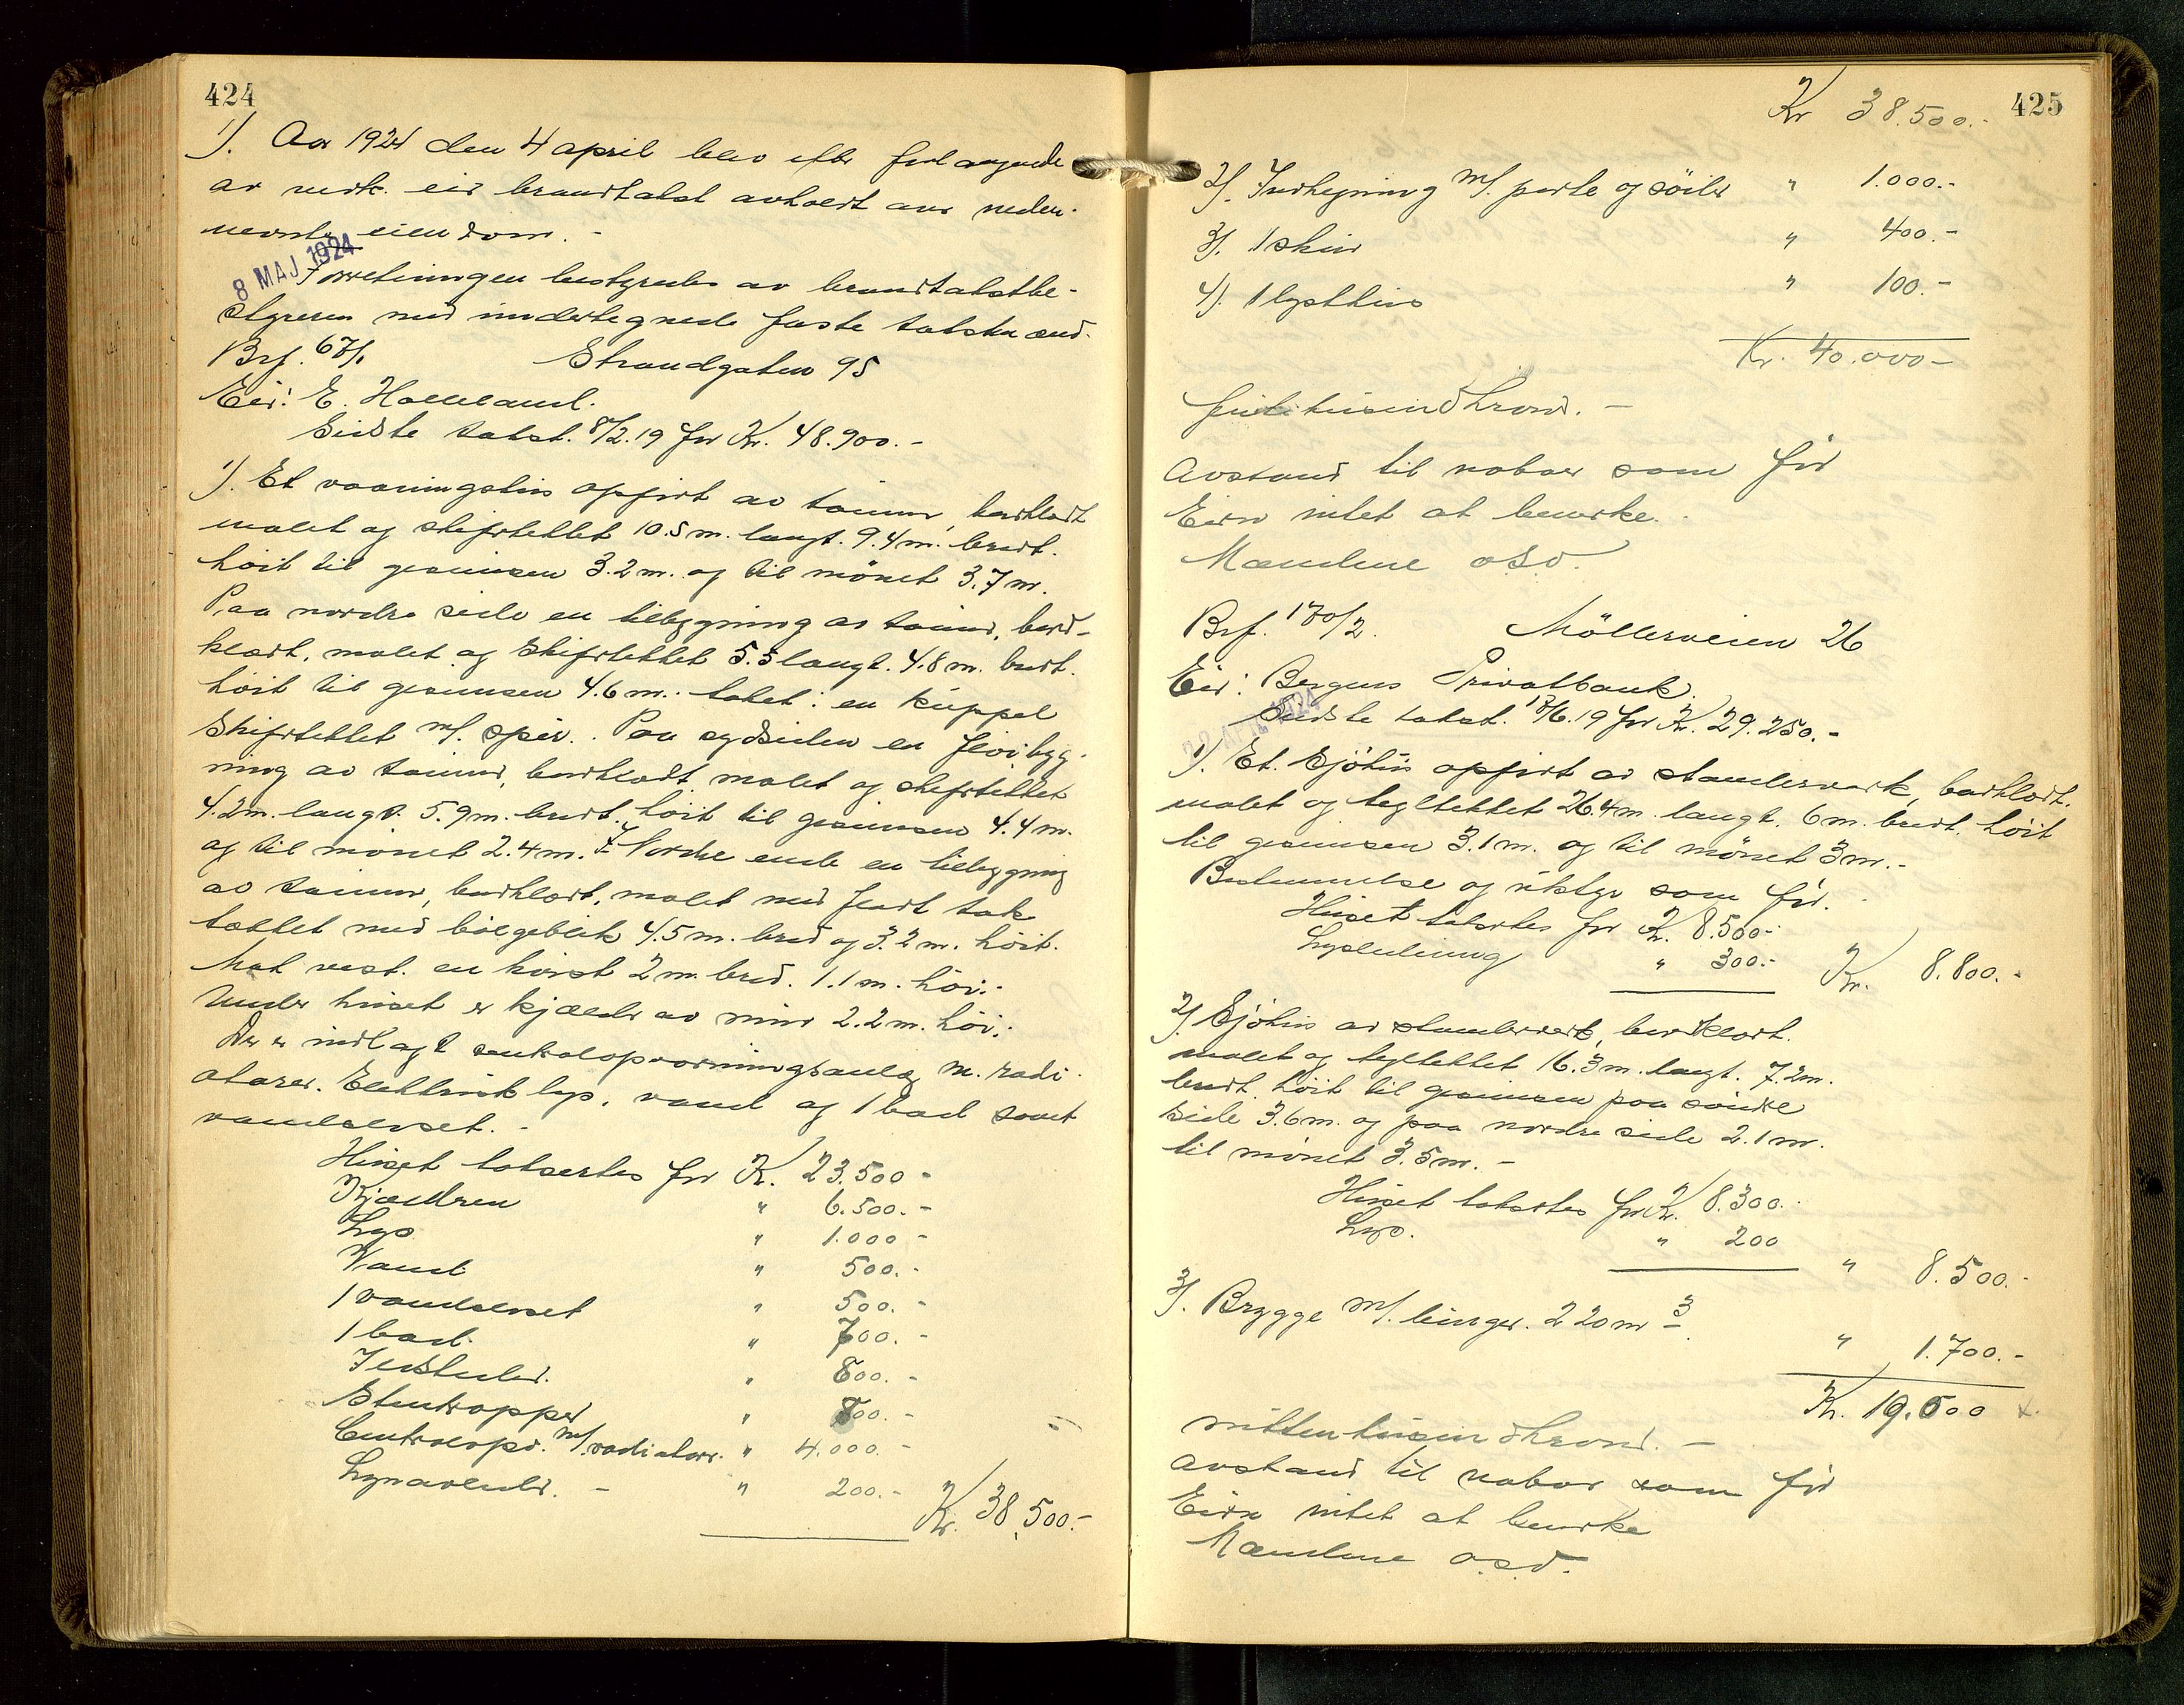 424
1). Aar 1924 den 4 april blev efter forlangende
av vedk. eier brandtakst avholdt over neden-
nevnte eiendom.-
8 MAJ 1924
Forretningen bestyredes av brandtakstbe-
styreren med undertegnede faste takstmænd.
Brf. 67/1 Strandgaten 95
Eier: E. Halleland.
Sidste takst. 8/2.19 for Kr. 48.900.-
1). Et vaaningshus opført av tømmer, bordklædt
malet og skifertekket 10.5 m. langt. 9.4 m. bredt.
høit til gesimsen 3.2 m. og til mønet 3.7 m.
Paa nordre side en tilbygning av tømmer, bord-
klædt, malet og skifertekket 5.5 langt. 4.8 m. bredt.
høit til gesimsen 4.6 m.. taket: en kuppel
skifertekket m/. spir.. Paa sydsiden en fløibyg-
ning av tømmer, bordklædt malet og skifertekket
4.2 m. langt. 5.9 m. bredt. høit til gesimsen 4.4 m.
og til mønet 2.4 m. I Nordre ende en tilbygning
av tømmer, bordklædt, malet med flatt tak
tækket med bølgeblik 4.5 m. bred og 3.2 m. høit.
Mot vest. en kvist 2 m. bred. 1.1 m. høi:-
Under huset er kjælder av mur 2.2 m. høi:
Der er indlagt centralopvarmningsanlæg m. radi-
atorer. Elektrisk lys, vand og 1 bad samt
vandcloset.-
Huset takseres for Kr. 23.500-
Kjælderen " 6.500.-
Lys " 1.000-
Vand " 500.-
1 vandcloset " 500.-
1 bad " 700.-
Ildsteder. " 800.-
Stentrapper " 800.-
Centralopv. m/. radiatorer. " 4.000.-
Lynavleder.- " 200.- Kr. 38.500.-
425
Kr 38.500.-
2). Indhegning m/. porte og søiler " 1.000.-
3). 1 skur " 400.-
4). 1 lysthus " 100.-
Kr. 40.000-
firti tusind kroner.-
Avstand til naboer som før
Eieren intet at bemerke.
Mændene o.s.v.
Brf. 170/2. Möllerveien 26
Eier: Bergens Privatbank.
Sidste takst. 17/6.19 for Kr. 29.250.-
1). Et Sjøhus opført av stenderverk, bordklædt.
malet og tegltekket 26.4 m. langt. 6 m. bredt. høit
til gesimsen 3.1 m. og til mønet 3 m.-
Bestemmelse og utstyr som før.
Huset takseres for Kr. 8.500.-
Lysledning " 300.- Kr. 8.800.-
2). Sjøhus av stenderverk, bordklædt.
malet og tegltekket 16.3 m. langt. 7.2 m.
bredt. høit til gesimsen paa søndre
side 3.6 m. og paa nordre side 2.1 m.
til mønet 3.5 m.-
Huset takseres for Kr. 8.300.-
Lys. " 200
" 8.500.-
3). Brygge m/. binger. 220 m 3 " 1.700.-
Kr. 19.000
nitten tusind kroner.-
Avstand til naboer som før
Eieren intet at bemerke
Mændene o.s.v.